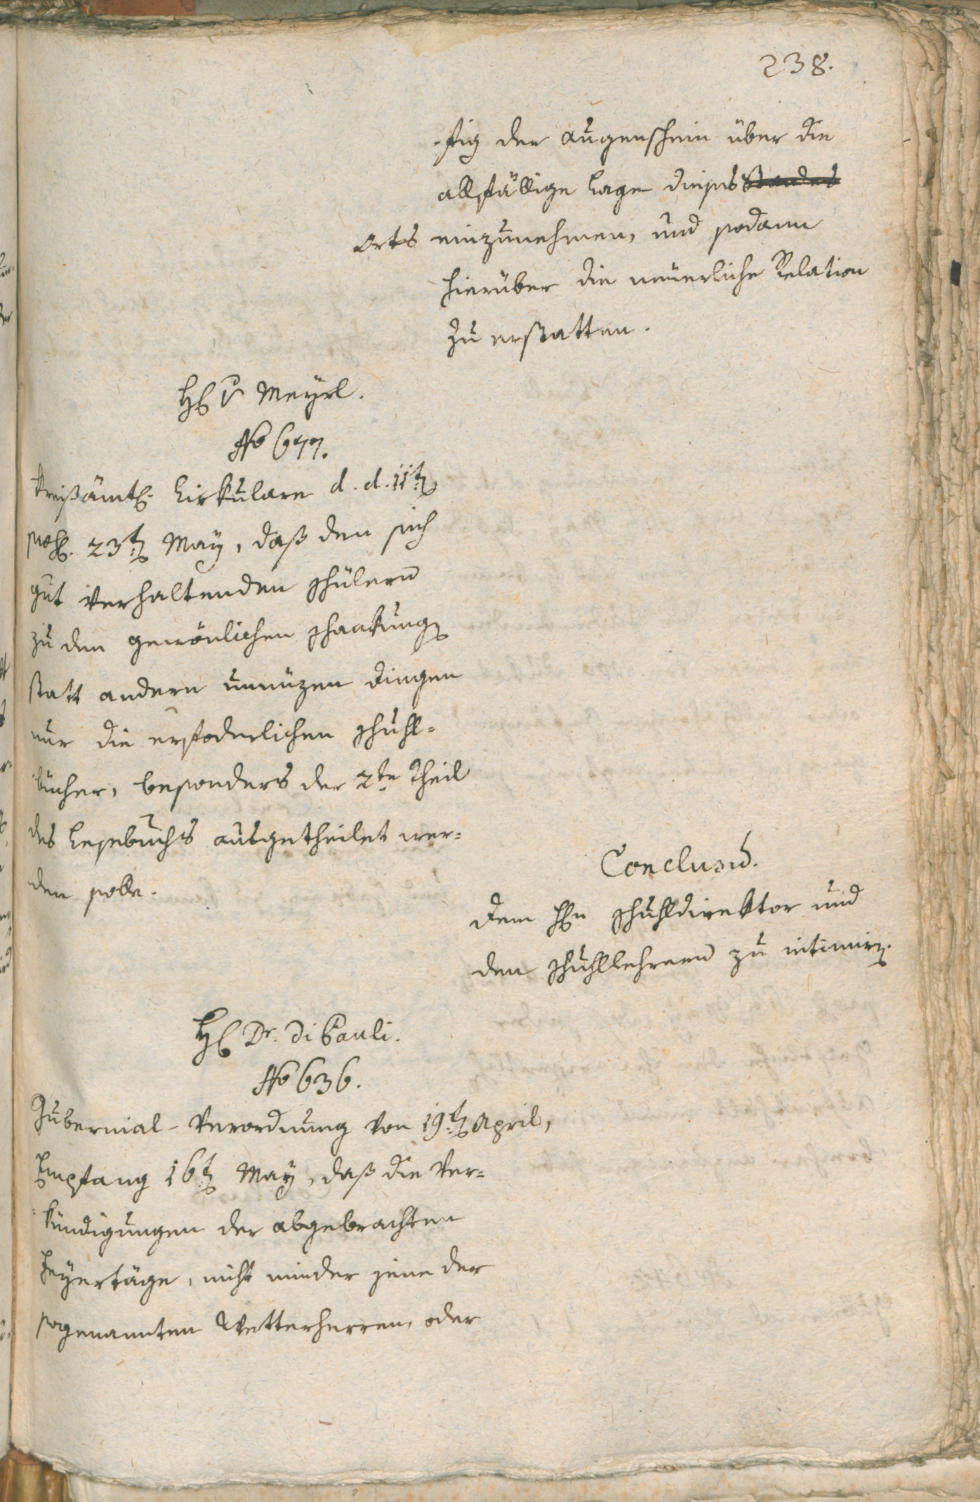 238.
-ftig den augenschein über die
allfällige Lage dieses Standes
Orts einzunehmen, und sodann
hierüber die neuerliche Relation
zu erstatten.
H: v Meÿrl.
No 677.
Kreißämtl. Cirkulare d. d. 11t
23t Maÿ, daß den sich
gut verhaltenden Schülern
zu den gewönlichen Schankung
statt andern unnüzen dingen
nur die erfoderlichen Schuhl-
bücher, besonders der 2te Theil
des Lesebuchs ausgetheilet wer=
den solle.
Conclusū.
Dem Hn Schuhldirektor und
den Schuhllehrern zu intimir.
H: Dr. Di Pauli.
No 636.
Gubernial-Verordnung von 19t April,
Empfang 16t Maÿ, daß die Ver=
kündigungen der abgebrachten
Feÿertäge, nicht minder jene der
sogenannten Wetterherren, oder